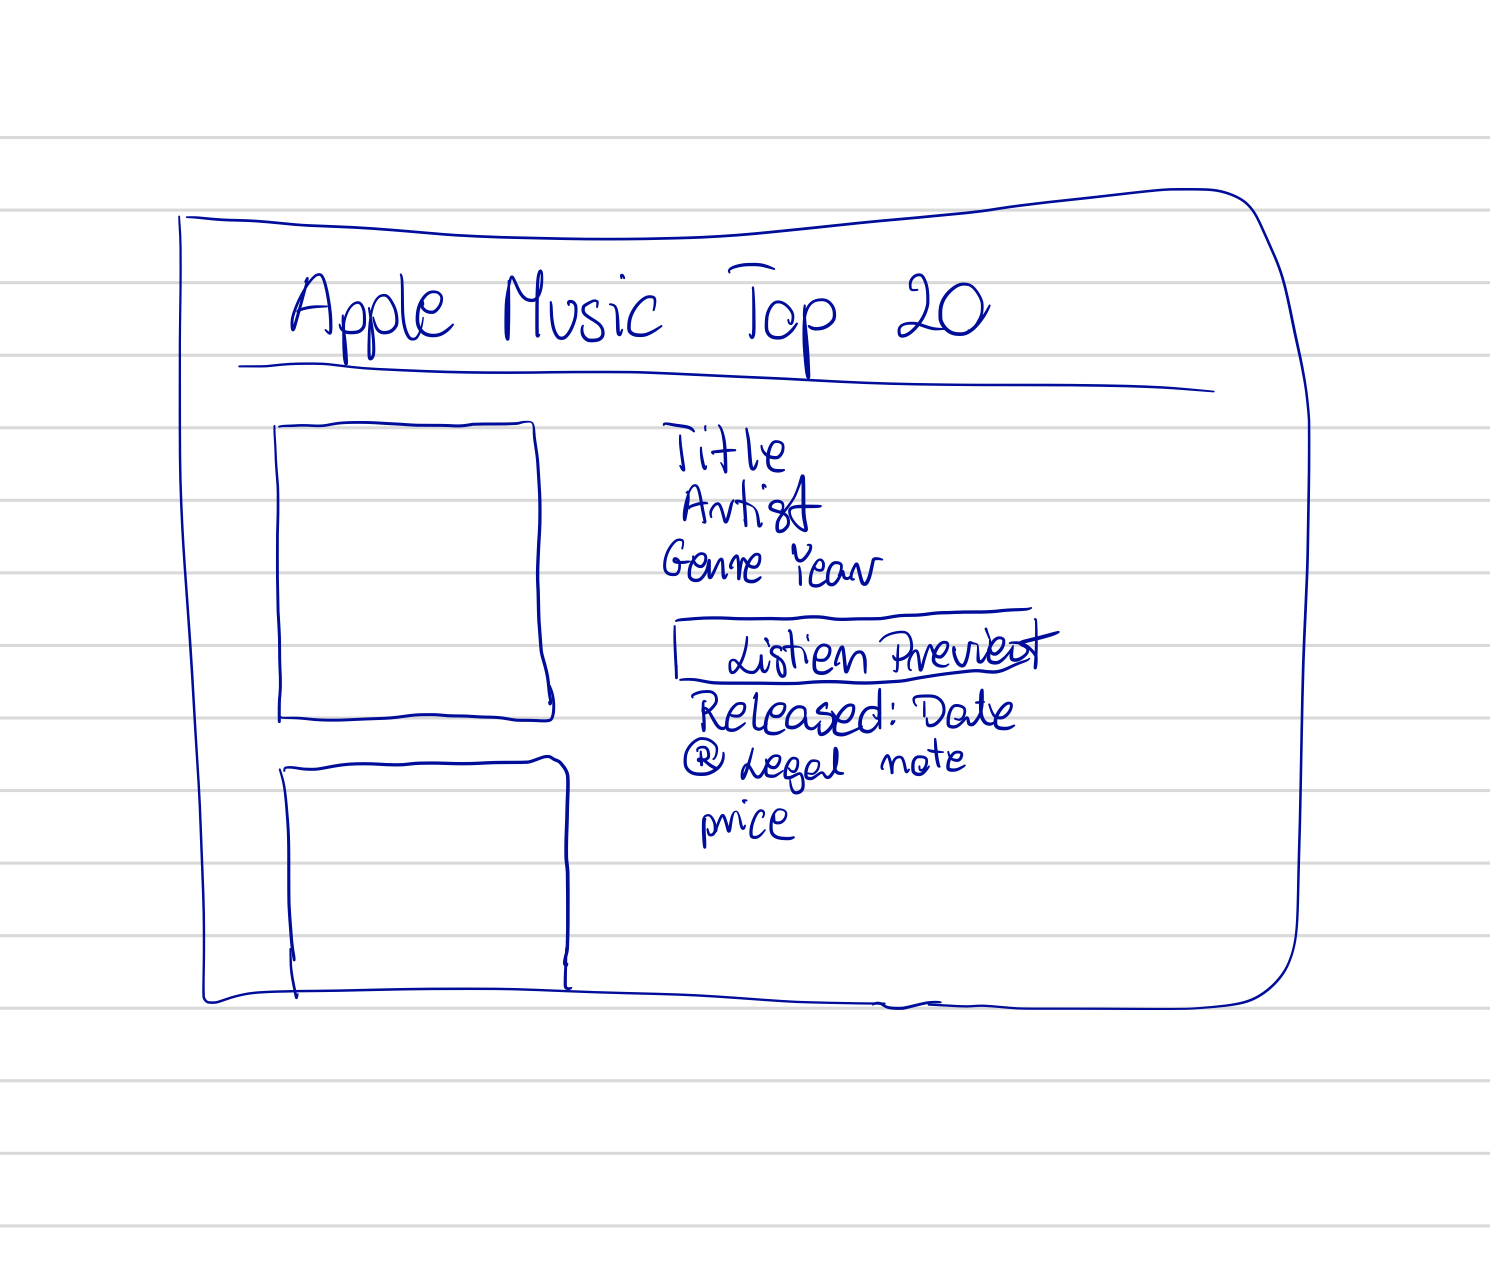 Apple Music Top 20
Title
Artist
Genre Year
Listien Preview
Released: Date
® Legal note
price